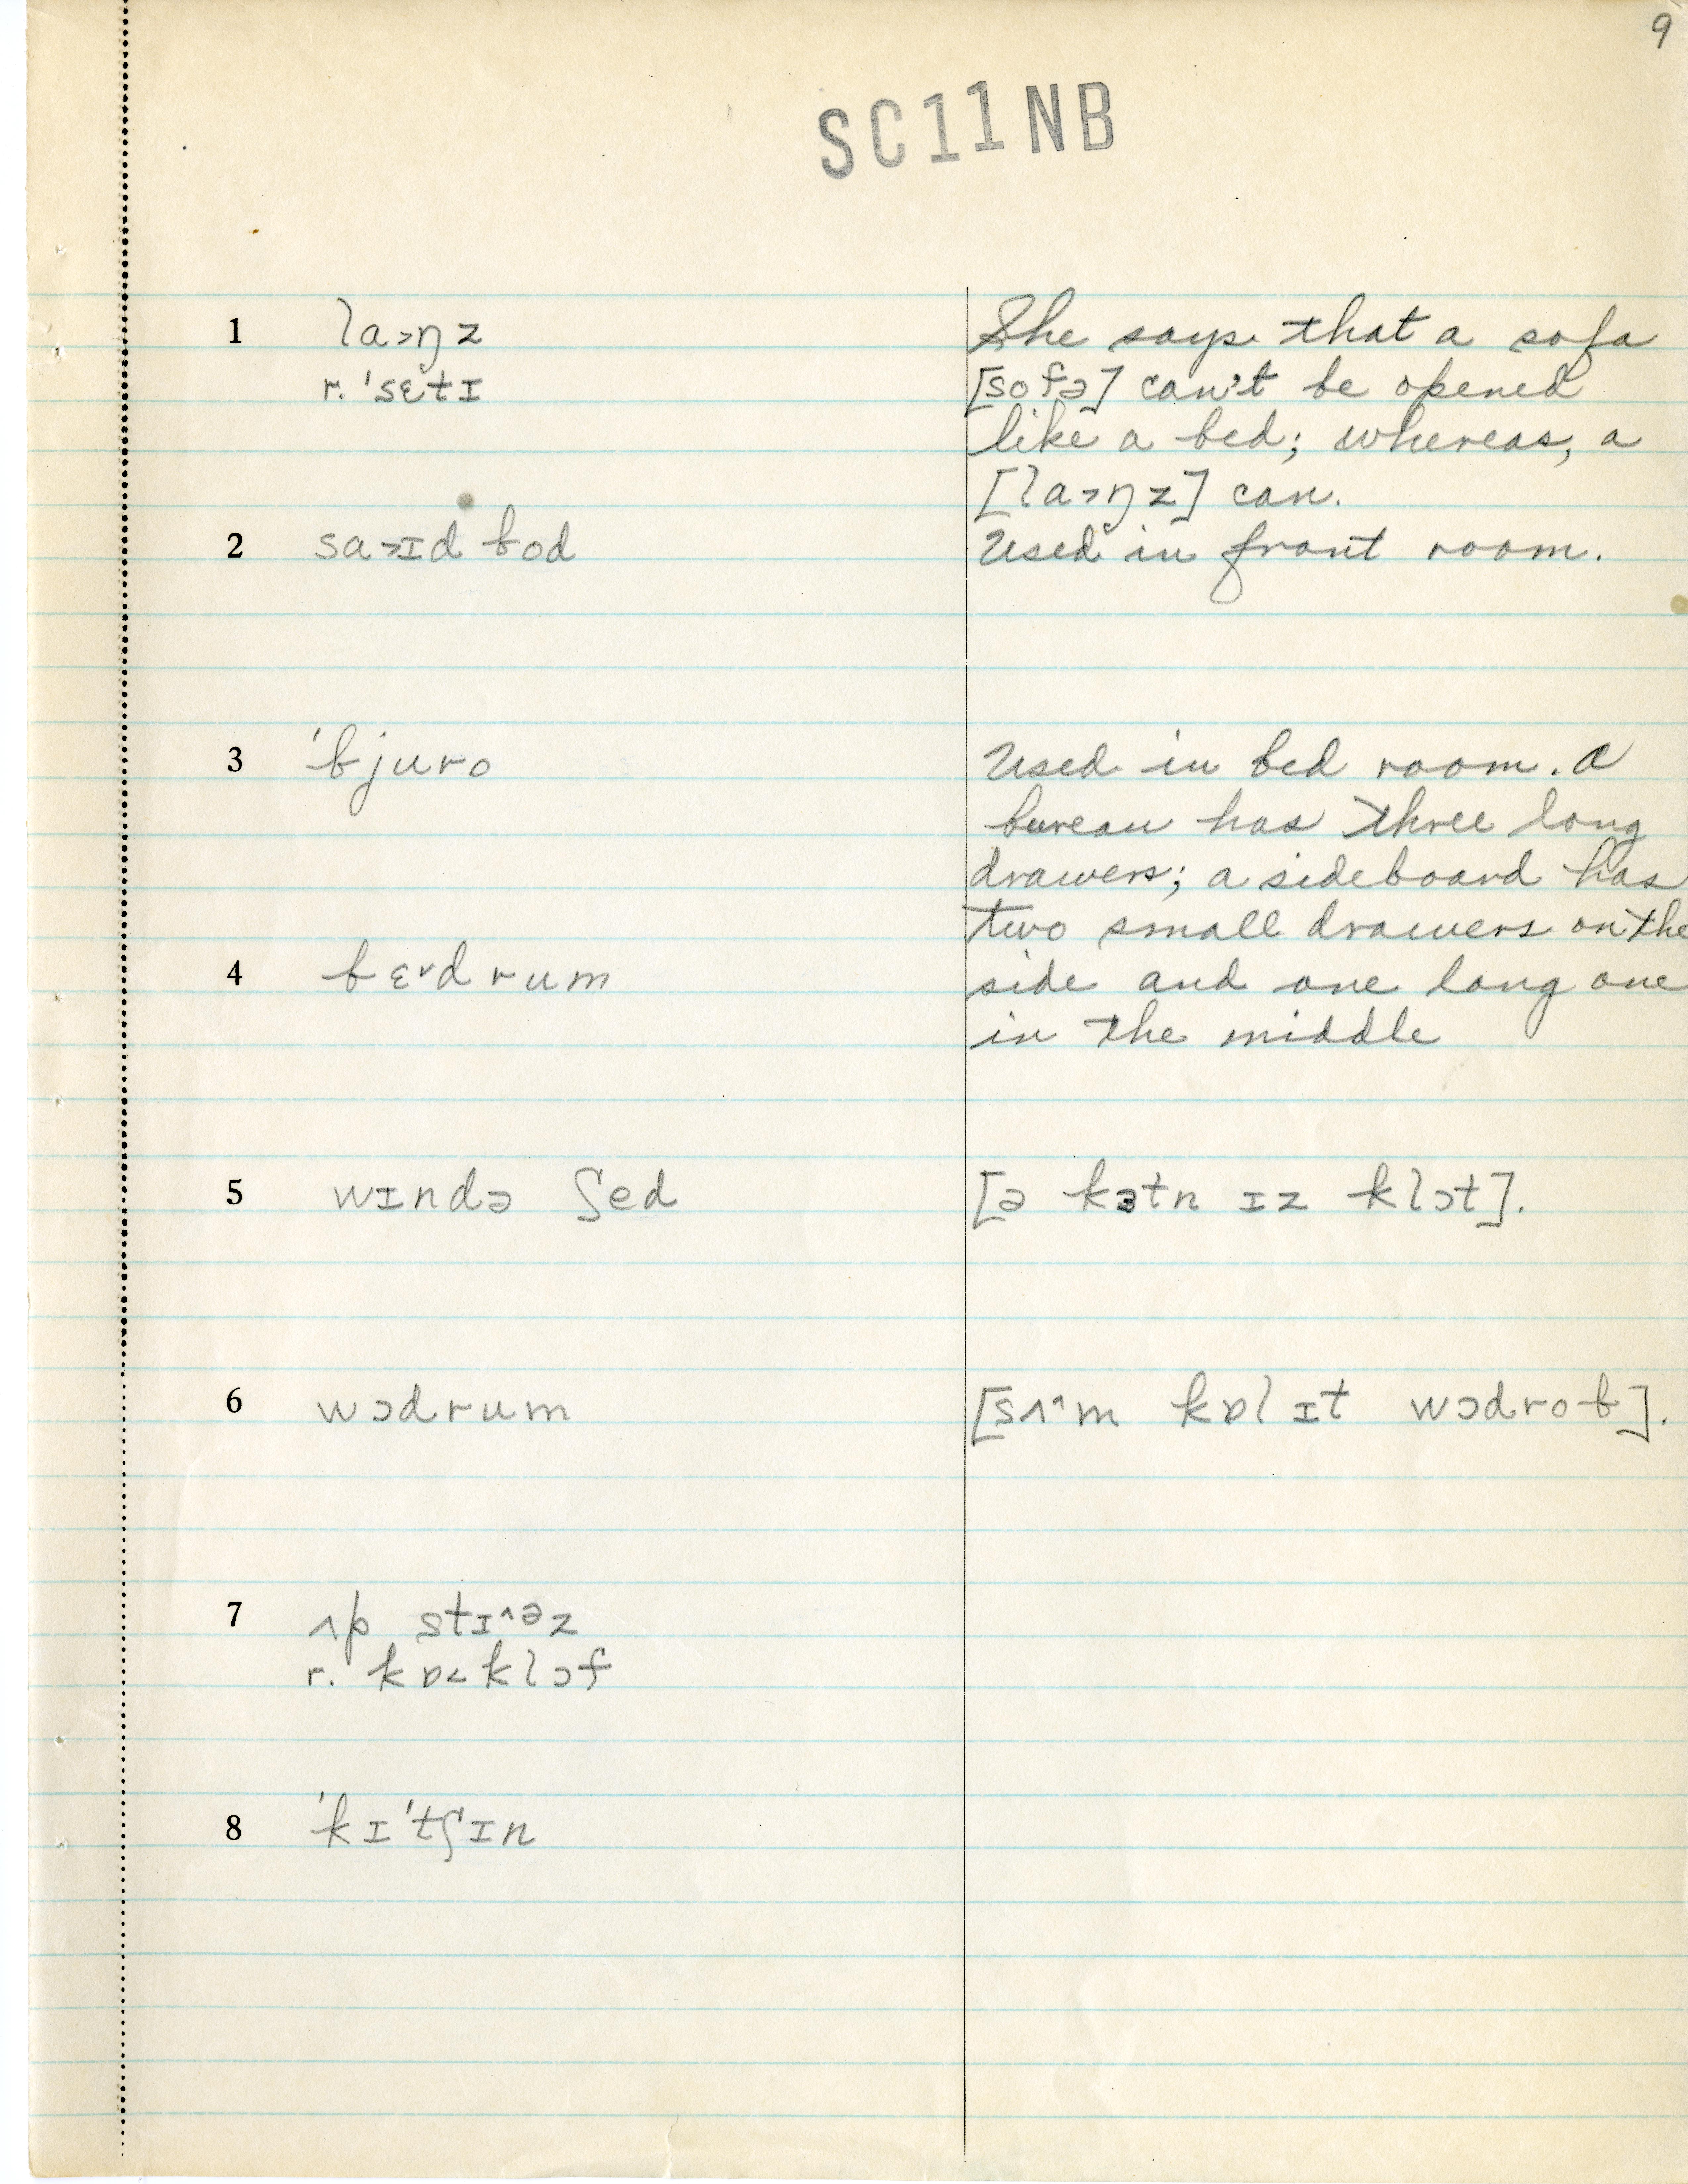 9
SC11NB
1 la˃ŋz
r. 'sɛtɪ
She says that a sofa
[sofə] can't be opened
like a bed; whereas, a
[la˃ŋz] can.
2 sa˃ɪd bod
Used in front room.
3 'bjuro
Used in bed room. A
bureau has three long
drawers; a sideboard has
two small drawers on the
side and one long one
in the middle
4 bɛ˅drum
5 wɪndə ʃed
[ə kɜtn ɪz klɔt].
6 wɔdrum
[sʌ˄m kɒl ɪt wɔdrob].
7 ʌp stɪ˄əz
r. kɒ˂klɔf
8 'kɪ'tʃɪn